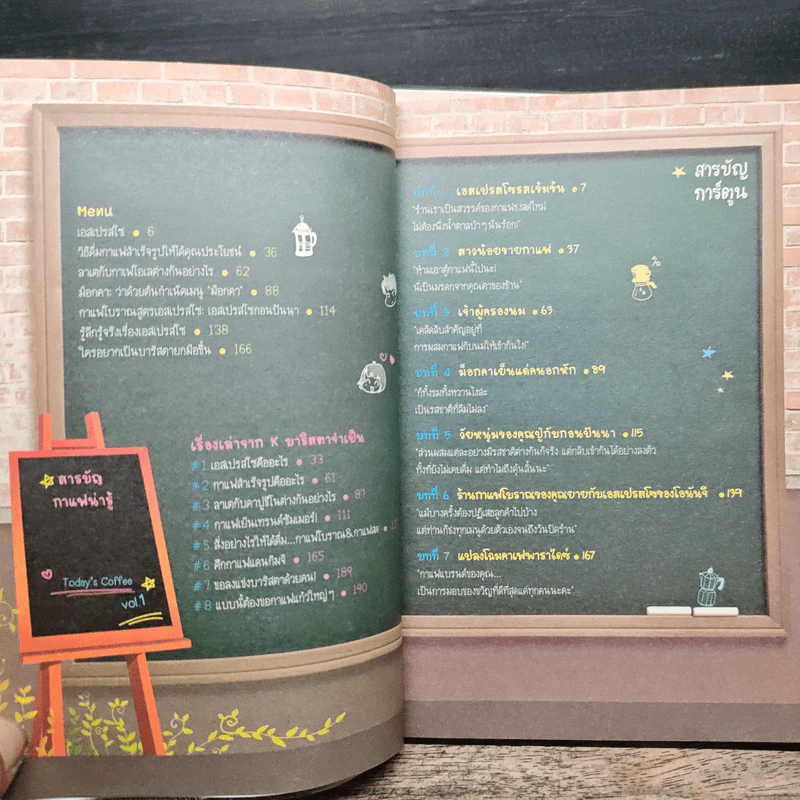 Menu
เอสเปรสโซ ● 6
วิธีดื่มกาแฟสำเร็จรูปให้ได้คุณประโยชน์ ● 36
ลาเตกับกาแฟโอเลต่างกันอย่างไร ● 62
ม็อกคา: ว่าด้วยต้นกำเนิดเมนู "ม็อกคา" ● 88
กาแฟโบราณสูตรเอสเปรสโซ: เอสเปรสโซกอนปันนา ● 114
รู้ลึกรู้จริงเรื่องเอสเปรสโซ ● 138
ใครอยากเป็นบาริสตายกมือขึ้น ● 166
เรื่องเล่าจาก K บาริสตาจำเป็น
#1 เอสเปรสโซคืออะไร ● 33
#2 กาแฟสำเร็จรูปคืออะไร ● 61
#3 ลาเตกับคาปูชิโนต่างกันอย่างไร ● 87
#4 กาแฟเย็นเทรนด์ซัมเมอร์! ● 111
#5 สิ่งอย่างไรให้ได้ดื่ม...กาแฟโบราณ&กาแฟสด ●
#6 ศึกกาแฟแดนกิมจิ ● 165
#7 ขอลงแข่งบาริสตาด้วยคน! ● 189
#8 แบบนี้ต้องขอกาแฟแก้วใหญ่ๆ ● 190
สารบัญ
กาแฟน่ารู้
Today's Coffee
vol.1
สารบัญ
การ์ตูน
บทที่ 1 เอสเปรสโซรสเข้มข้น ● 7
"ร้านเราเป็นสวรรค์ของกาแฟรสสดใหม่
ไม่ต้องพึ่งน้ำตาลบ้าๆ นั่นร็อก!"
บทที่ 2 สาวน้อยขายกาแฟ ● 37
"ห้ามเอาตู้กาแฟนี้ไปนะ!
นี่เป็นมรดกจากคุณตาของข้าน"
บทที่ 3 เจ้าผู้ครองนม ● 63
"เคล็ดลับสำคัญอยู่ที่
การผสมกาแฟกับนมให้เข้ากันไง!"
บทที่ 4 ม็อกคาเย็นแด่คนอกหัก ● 89
"ก็ทั้งขมทั้งหวานไงล่ะ
เป็นรสชาติที่ลืมไม่ลง"
บทที่ 5 วัยหนุ่มของคุณปู่กับกอนปันนา ● 115
"ส่วนผสมแต่ละอย่างมีรสชาติต่างกันก็จริง แต่กลับเข้ากันได้อย่างลงตัว
ทั้งที่ยังไม่เคยดื่ม แต่ทำไมถึงคุ้นลิ้นนะ"
บทที่ 6 ร้านกาแฟโบราณของคุณยายกับเอสเปรสโซของโอนันจี ● 139
"แม้บางครั้งต้องปฏิเสธลูกค้าไปบ้าง
แต่ท่านก็ชงทุกเมนูด้วยตัวเองจนถึงวันปิดร้าน"
บทที่ 7 แปลงโฉมคาเฟพาราไดซ์ ● 167
"กาแฟแบรนด์ของคุณ...
เป็นการมอบของขวัญที่ดีที่สุดแด่ทุกคนนะคะ"